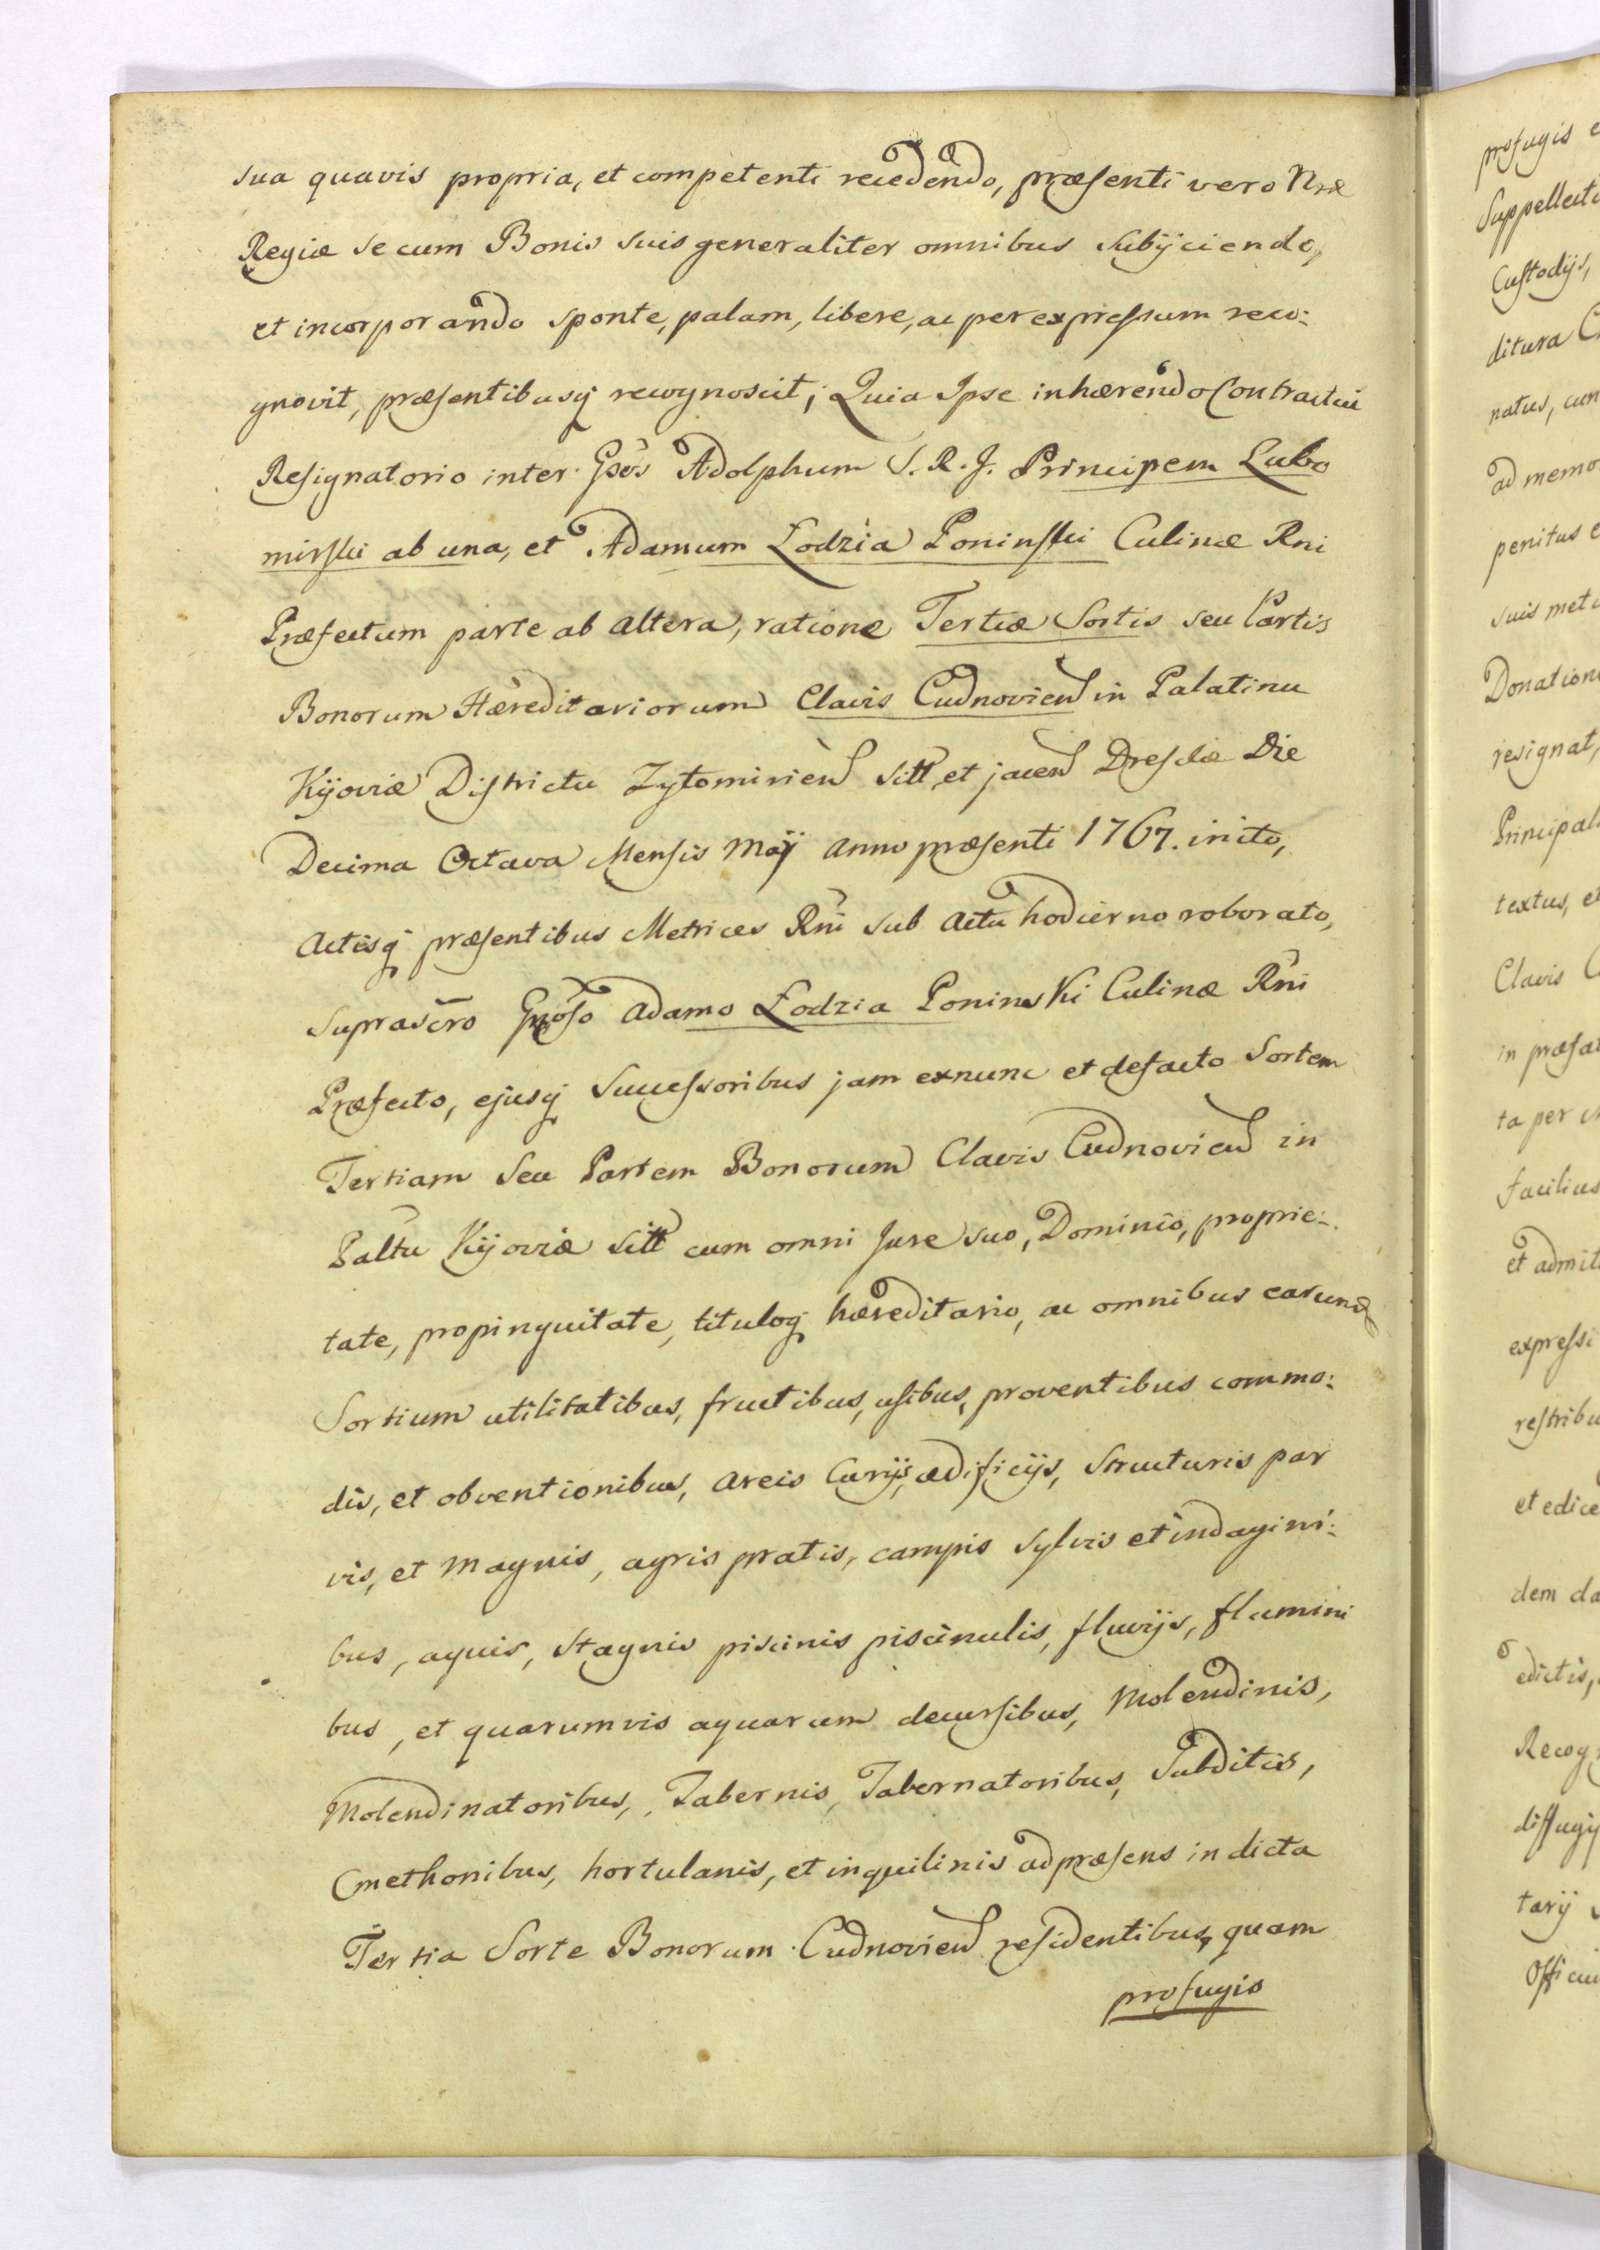 sua quavis propria, et competenti recedendo, præsenti vero Nræ
Regiæ se cum Bonis suis generaliter omnibus subijciendo,
et incorporando sponte, palam, libere, ac per expressum reco:
gnovit, præsentibusq recognoscit; Quia Ipse inhærendo Contractui
Resignatorio inter Gsõs Adolphum S. R. J. Principem Lubo
mirski ab una, et Adamum Łodzia Poninski Culinæ Rni
Præfectum parte ab altera, ratione Tertiæ Sortis seu Partis
Bonorum Hæreditariorum Clavis Cudnovien in Palatinu
Kijoviæ Districtu Zytomirien sitt, et jacen Dresdæ Die
Decima Octava Mensis Maÿ anno præsenti 1767. inito,
Actisq præsentibus Metrices Rni sub Actu hodierno roborato,
suprascro Gnoso Adamo Łodzia Poninski Culinæ Rni
Præfecto, ejusq Successoribus jam exnunc et defacto Sortem
Tertiam seu Partem Bonorum Clavis Cudnovien in
Paltu Kijoviæ sitt cum omni Jure suo, Dominio, proprie:
tate, propinquitate, tituloq hæreditario, ac omnibus earund
Sortium utilitatibus, fructibus, usibus, proventibus commo:
dis, et obventionibus, areis Curijs, ædificijs, Structuris par
vis, et magnis, agris pratis, campis sylvis et indagini:
bus, aquis, stagnis piscinis piscinulis, fluvijs, flumini
bus, et quarumvis aquarum decursibus, Molendinis,
Molendinatoribus, Tabernis, Tabernatoribus, Subditis,
Cmethonibus, hortulanis, et inquilinis ad præsens in dicta
Tertia Sorte Bonorum Cudnovien residentibus, quam
profugis
profugis
Suppellecti
Custodijs,
ditura
natus, cum
ad memo
penitus
suis met
Donation
resignat,
Principal
textus, et
Clavis
in præfa
ta per
facilius
et admit
expressi
restribu
et edice
dem da
edictis,
Recog
diffugij
tarij
Officiu